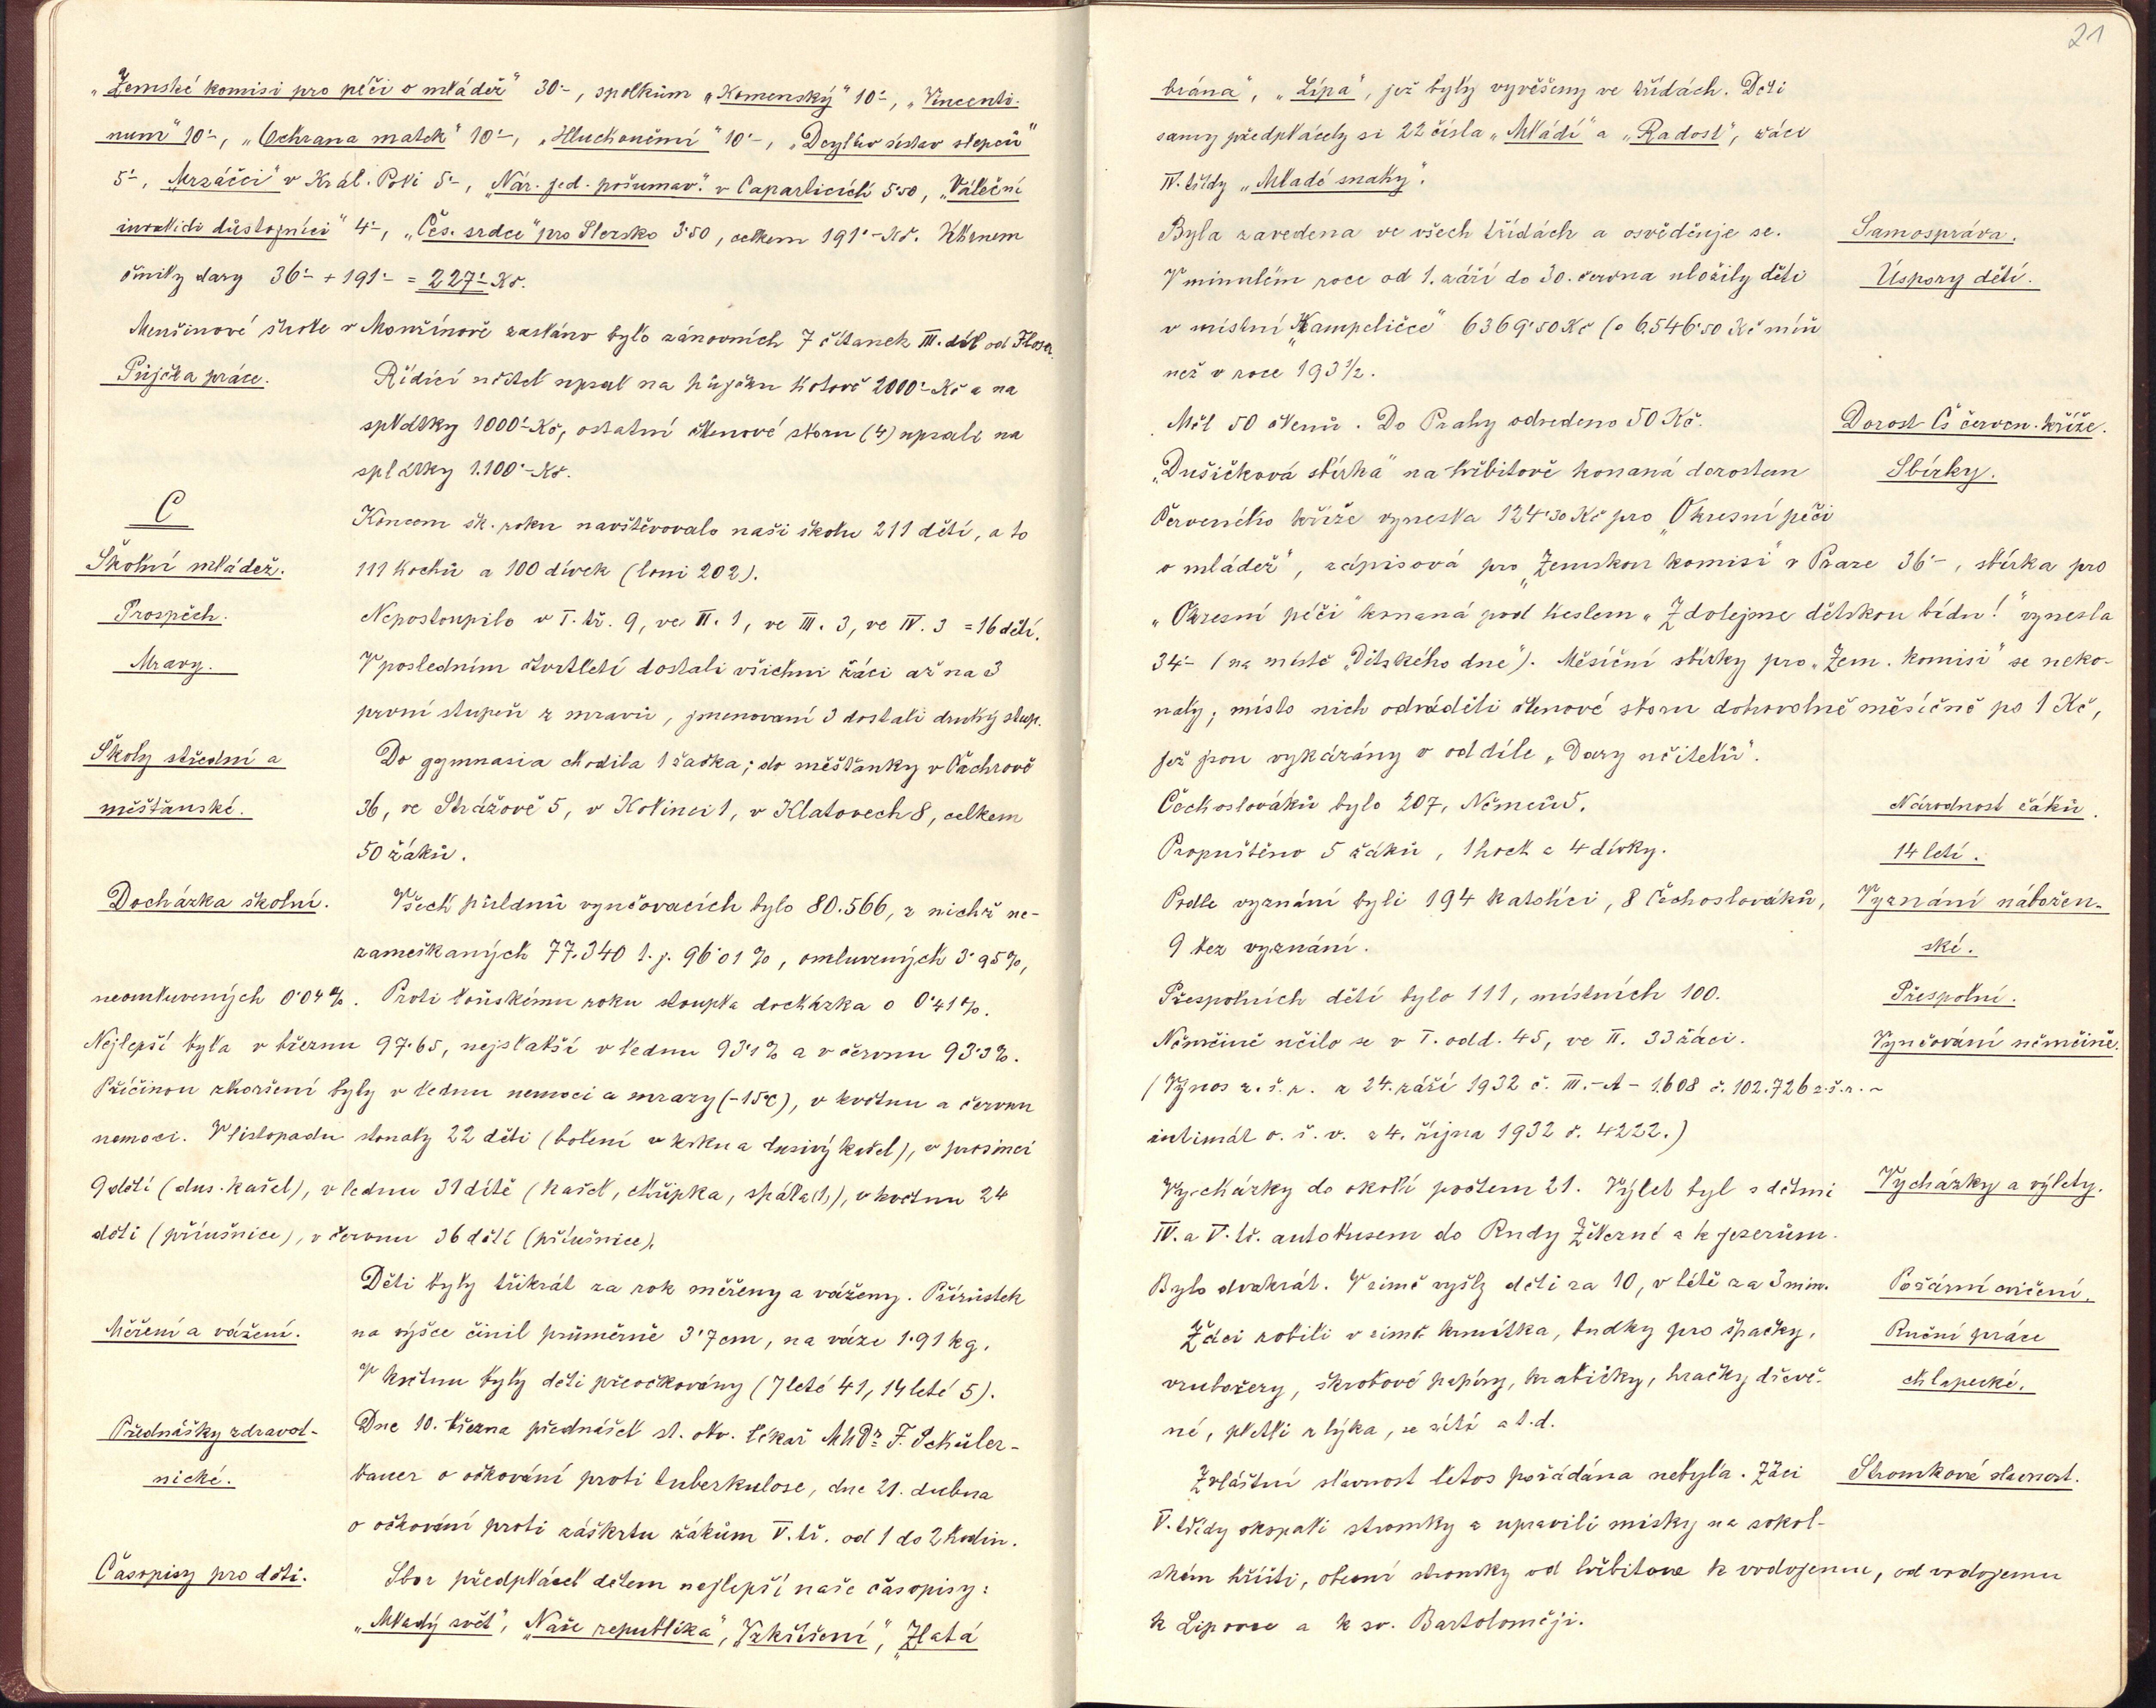 „Zemské komisi pro péči o mládež" 30·-, spolkům „Komenský" 10·-, „Vincenti-
num" 10·-, „Ochrana matek" 10·-, „Hluchoněmí" 10·-, „Deylův ústav slepců"
5·-, „Mrzáčci" v Král. Poli 5·-, „Nár. jed. pošumav." v Caparticích 5·50, „Váleční
invalidi důstojníci" 4·-, „Čes. srdce" pro Slezsko 3·50, celkem 191·- Kč. Úhrnem
činily dary 36·- + 191·- = 227·- Kč.
Menšinové škole v Monžínově zasláno bylo zánovních 7 čítanek III. díl od Flosa.
Půjčka práce.
Řídící učitel upsal na půjčku hotově 2000·- Kč a na
splátky 1000·- Kč, ostatní členové sboru (4) upsali na
splátky 1.100·- Kč.
C
Školní mládež.
Koncem šk. roku navštěvovalo naši školu 211 dětí, a to
111 hochů a 100 dívek (loni 202).
Prospěch.
Nepostoupilo v I. tř. 9, ve II. 1, ve III. 3, ve IV. 3 = 16 dětí.
Mravy.
V posledním čtvrtletí dostali všichni žáci až na 3
první stupeň z mravů, jmenovaní 3 dostali druhý stup.
Školy střední a
měšťanské.
Do gymnasia chodila 1 žačka; do měšťanky v Čachrově
36, ve Strážově 5, v Kolinci 1, v Klatovech 8, celkem
50 žáků.
Docházka školní.
Všech půldnů vyučovacích bylo 80.566, z nichž ne-
zameškaných 77.340 t. j. 96·01 %, omluvených 3·95 %,
neomluvených 0·04 %. Proti loňskému roku stoupla docházka o 0·41 %.
Nejlepší byla v březnu 97·65, nejslabší v lednu 93·1 % a v červnu 93·3 %.
Příčinou zhoršení byly v lednu nemoci a mrazy (-15°C), v květnu a červnu
nemoci. V listopadu stonaly 22 děti (bolení v krku a dusivý kašel), v prosinci
9 dětí (dus. kašel), v lednu 31 dítě (kašel, chřipka, spála (1)), v květnu 24
děti (příušnice), v červnu 36 dětí (příušnice).
Měření a vážení.
Děti byly třikrát za rok měřeny a váženy. Přírůstek
na výšce činil průměrně 3·7 cm, na váze 1·91 kg.
V květnu byly děti přeočkovány (7 leté 41, 14 leté 5).
Přednášky zdravot-
nické.
Dne 10. března přednášel st. obv. lékař MUDr F. Schüler-
bauer o očkování proti tuberkulose, dne 21. dubna
o očkování proti záškrtu žákům V. tř. od 1 do 2 hodin.
Časopisy pro děti.
Sbor předplácel dětem nejlepší naše časopisy:
„Mladý svět", „Naše republika", „Vzkříšení", „Zlatá
21
brána", „Lípa", jež byly vyvěšeny ve třídách. Děti
samy předplácely si 22 čísla „Mládí" a „Radost", žáci
IV. třídy „Mladé snahy".
Byla zavedena ve všech třídách a osvědčuje se.
Samospráva.
V minulém roce od 1. září do 30. června uložily děti
Úspory dětí.
v místní „Kampeličce" 6369·50 Kč (o 6.546·50 Kč míň
než v roce 193½.
Měl 50 členů. Do Prahy odvedeno 50 Kč.
Dorost Čs červen. kříže.
„Dušičková sbírka" na hřbitově konaná dorostem
Sbírky.
Červeného kříže vynesla 124·30 Kč pro „Okresní péči
o mládež", zápisová pro „Zemskou komisi" v Praze 36·-, sbírka pro
„Okresní péči" konaná pod heslem „Zdolejme dětskou bídu!" vynesla
34·- (na místě „Dětského dne"). Měsíční sbírky pro „Zem. komisi" se neko-
naly; místo nich odváděli členové sboru dobrovolně měsíčně po 1 Kč,
jež jsou vykázány v oddíle „Dary učitelů".
Čechoslováků bylo 207, Němců 5.
Národnost žáků.
Propuštěno 5 žáků, 1 hoch a 4 dívky.
14 letí.
Podle vyznání byli 194 katolíci, 8 Čechoslováků,
Vyznání nábožen-
9 bez vyznání.
ské.
Přespolních dětí bylo 111, místních 100.
Přespolní.
Němčině učilo se v I. odd. 45, ve II. 33 žáci.
Vyučování němčině.
(Výnos z. š. r. z 24. září 1932 č. III.-A-1608 č. 102.726 z. š. r. ~
intimát o. š. v. z 4. října 1932 č. 4222.)
Vycházky do okolí počtem 21. Výlet byl s dětmi
Vycházky a výlety.
IV. a V. tř. autobusem do Rudy Železné a k jezerům.
Bylo dvakrát. V zimě vyšly děti za 10, v létě za 3 min.
Požární cvičení.
Žáci robili v zimě krmítka, budky pro špačky,
Ruční práce
vrubořezy, škrobové papíry, krabičky, hračky dřevě-
chlapecké.
né, pletli z lýka, ze sítí a t. d.
Zvláštní slavnost letos pořádána nebyla. Žáci
Stromková slavnost.
V. třídy okopali stromky a upravili misky na sokol-
ském hřišti, obecní stromky od hřbitova k vodojemu, od vodojemu
k Liporce a k sv. Bartoloměji.